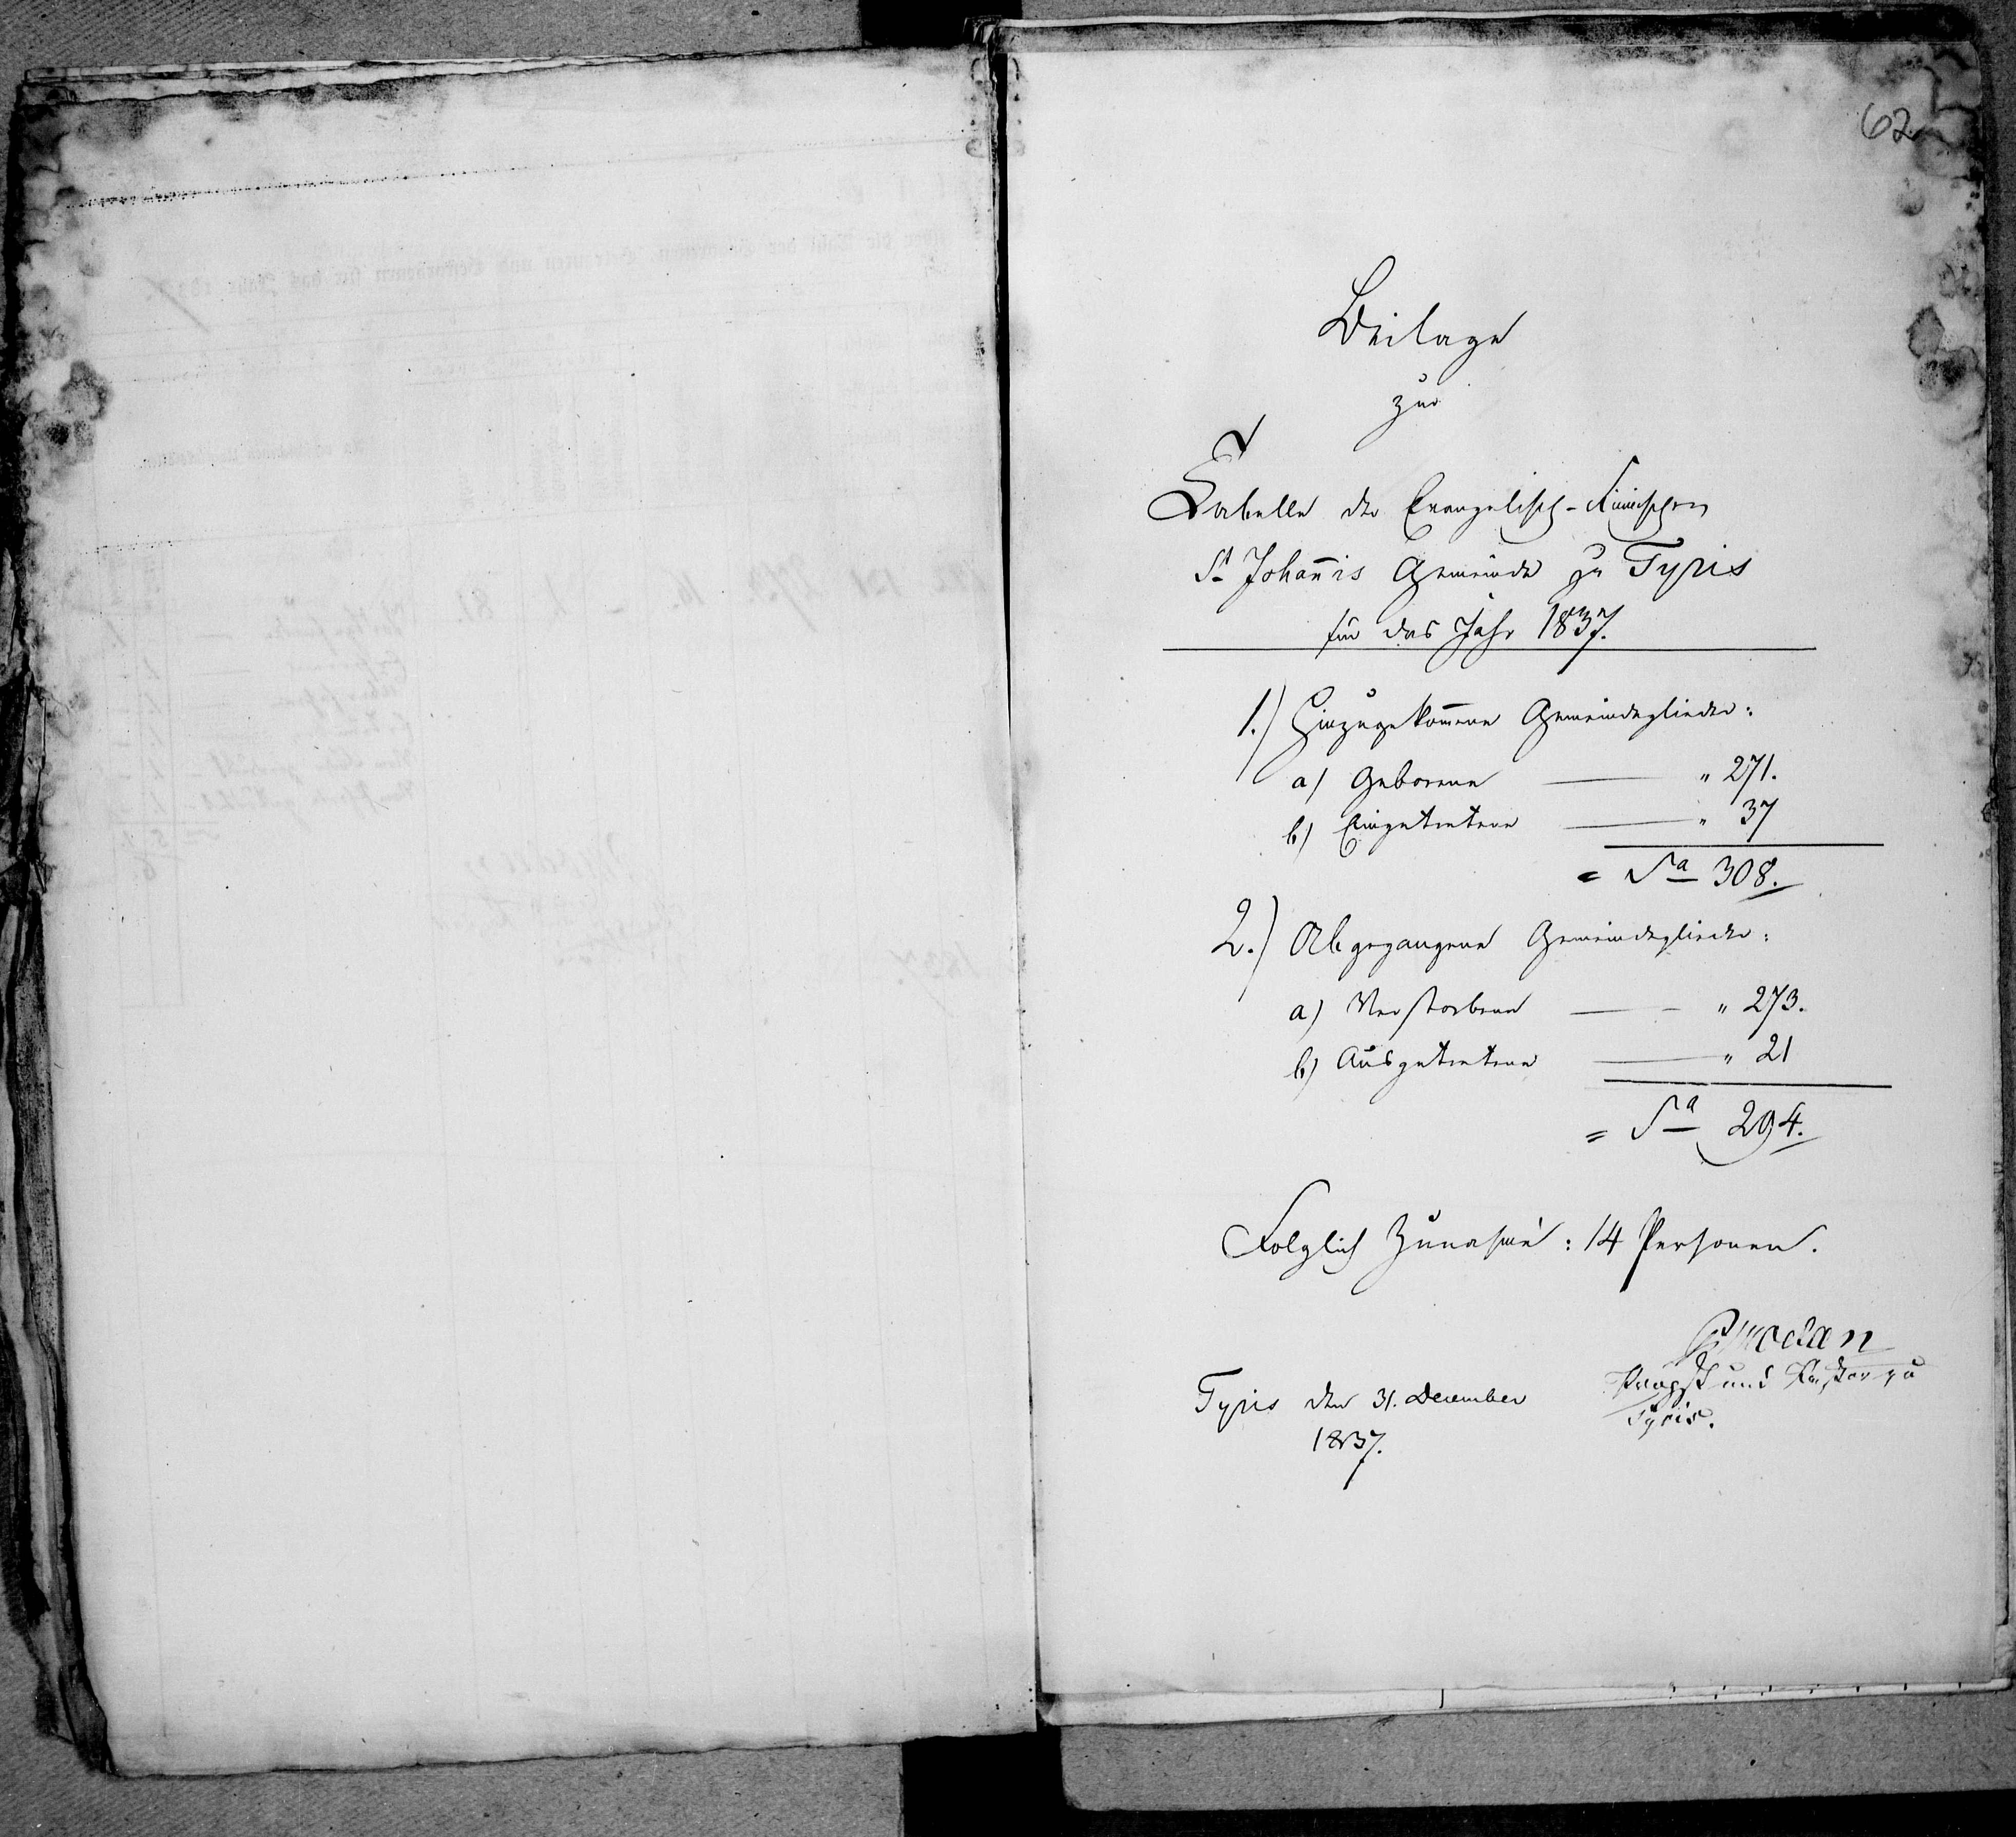 62
Beilage
zur
Tabelle der Evangelisch-Finnischen
St Johan̄is Gemeinde zu Tyris
für das Jahr 1837.
1.) Hinzugekom̄ene Gemeindeglieder:
a) Geborene — " 271.
b) Eingetretene — " 37
= Sa 308.
2.) Abgegangene Gemeindeglieder:
a) Verstorbene — " 273.
b) Ausgetretene — " 21
= Sa 294.
Folglich Zunahme: 14 Personen.
Propst und Pastor zu
Tyris.
Tyris den 31. December
1837.